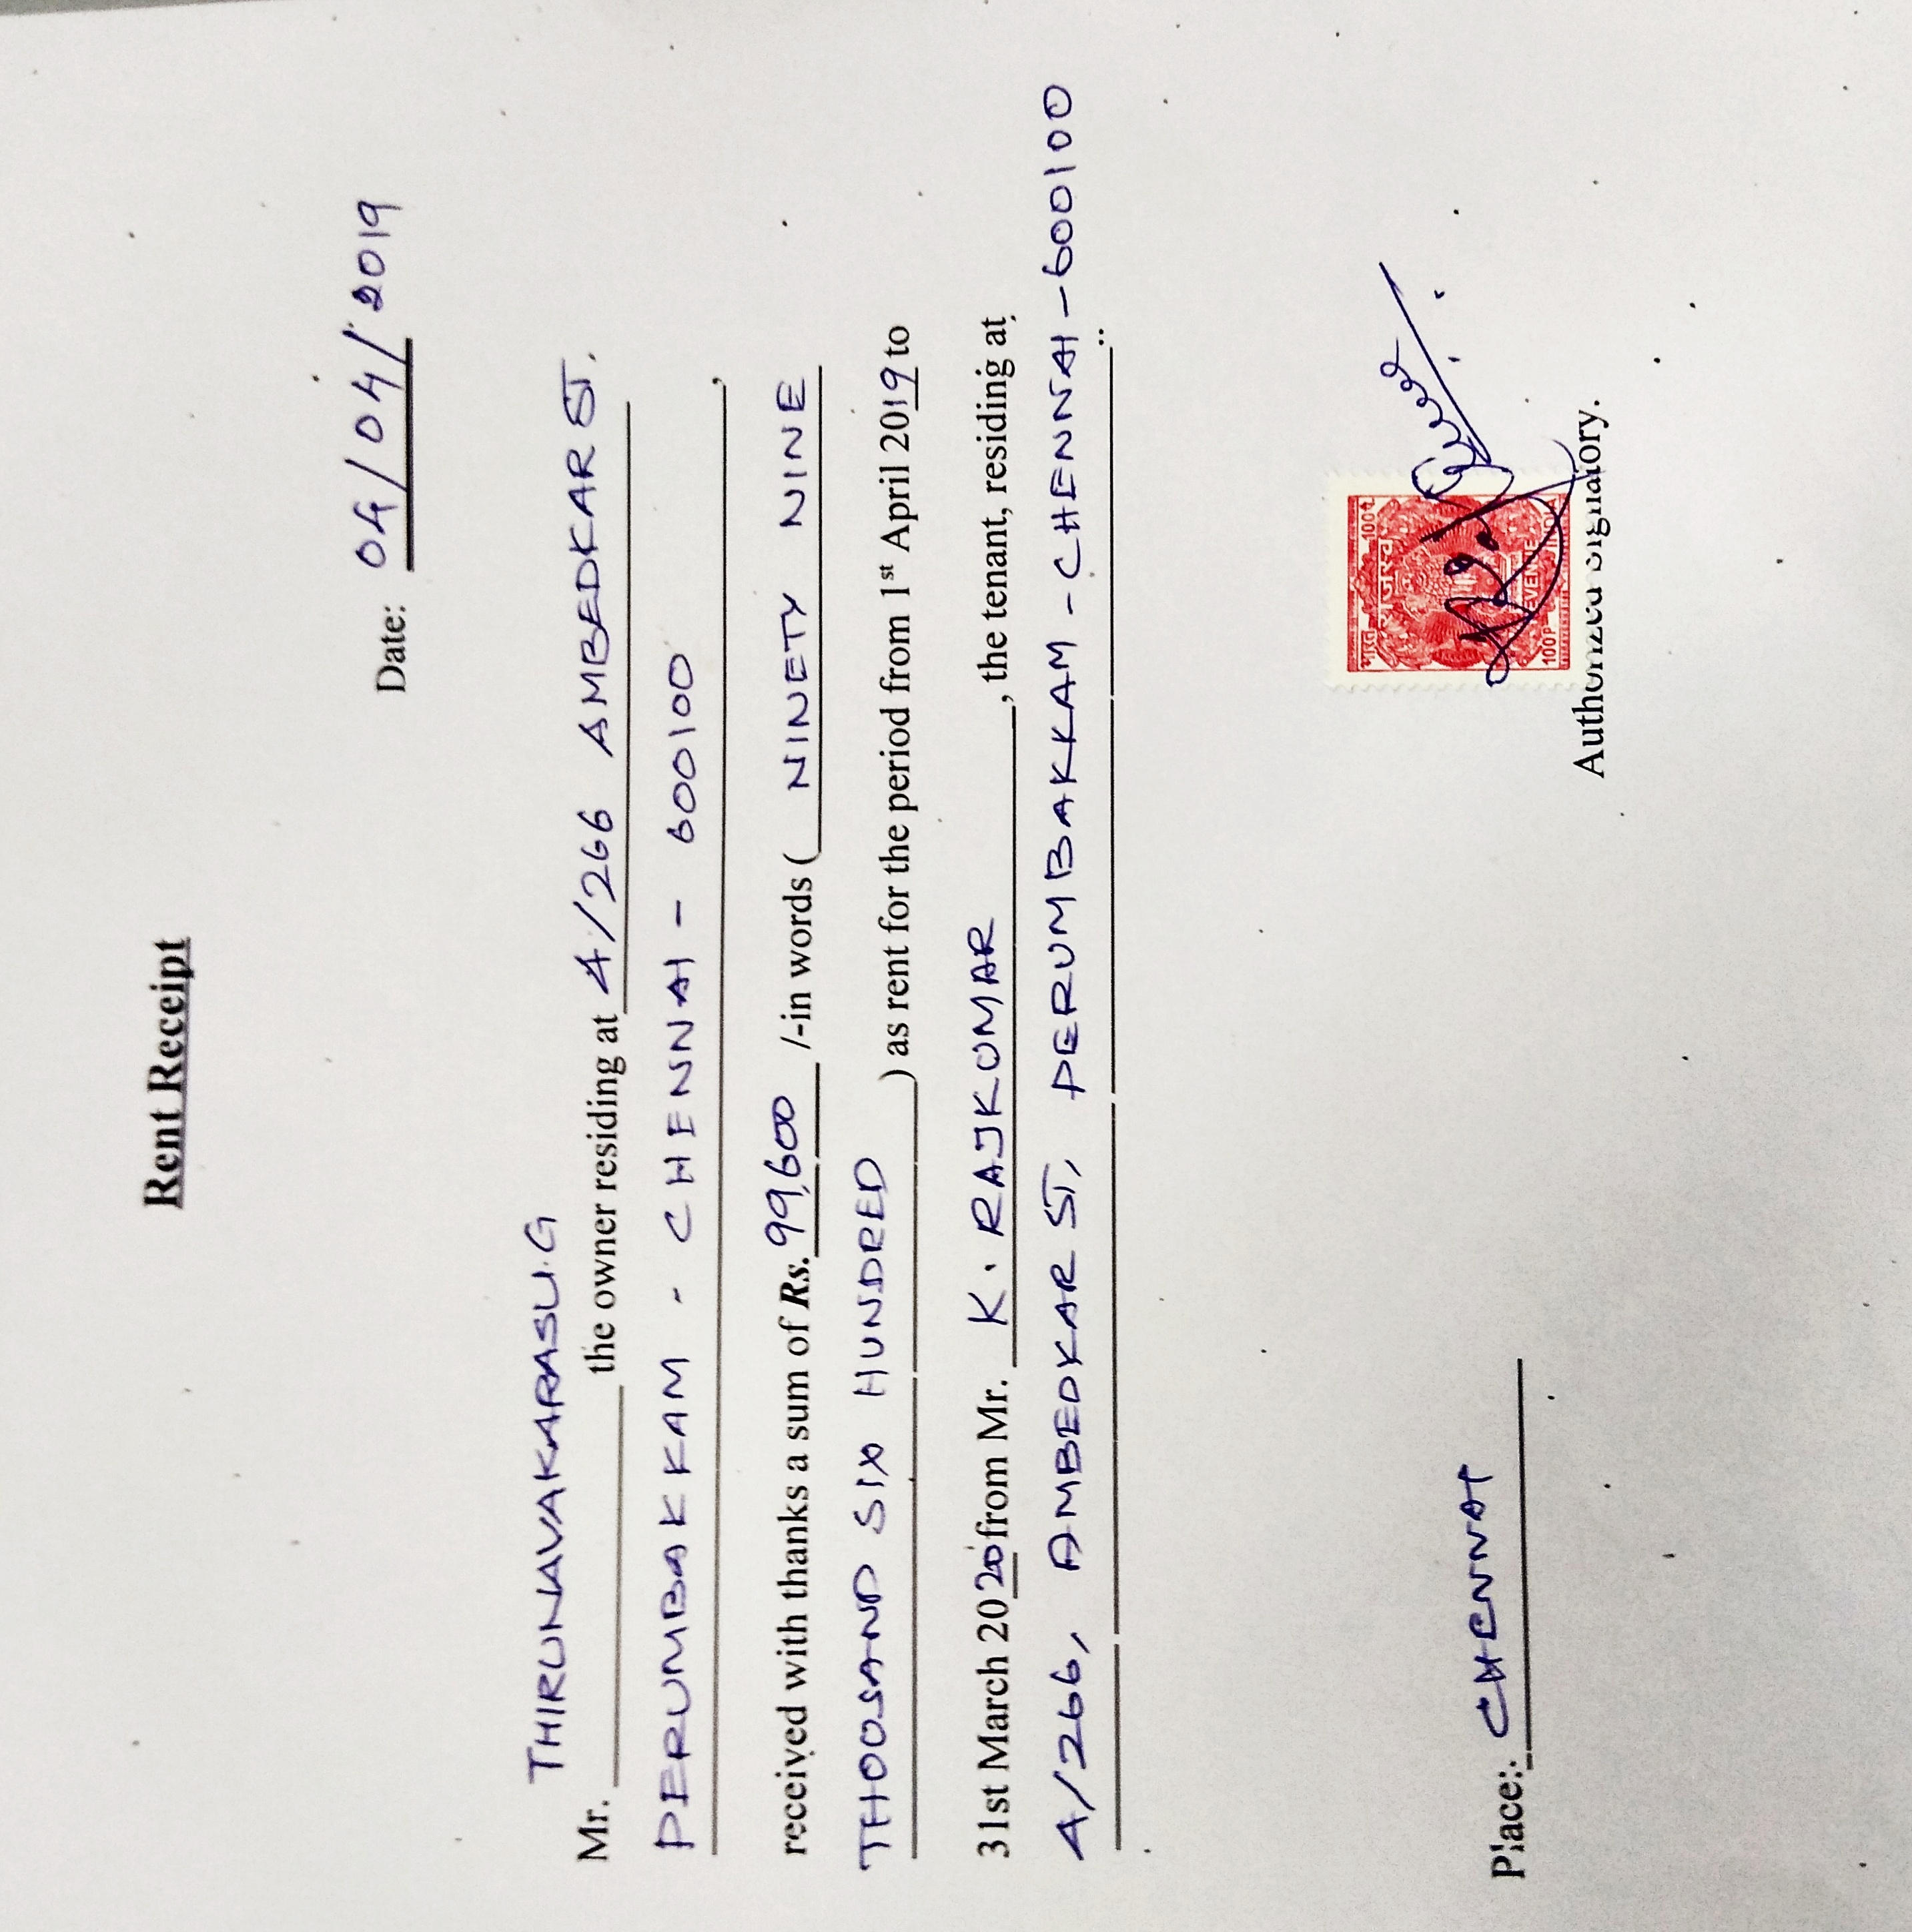 Rent Receipt
Date: 04/04/2019
THIRUNAVAKARASU.G
Mr. the owner residing at 4/266 AMBEDKAR ST.
PERUMBAKKAM - CHENNAI - 600100,
received with thanks a sum of Rs. 99,600 /-in words ( NINETY NINE
THOUSAND SIX HUNDRED ) as rent for the period from 1st April 2019 to
31st March 2020 from Mr. K. RAJKUMAR, the tenant, residing at
4/266, AMBEDKAR ST, PERUMBAKKAM - CHENNAI - 600100
भारत 100
राजस्व
100P REVENUE INDIA
Authorized Signatory.
Place: CHENNAI